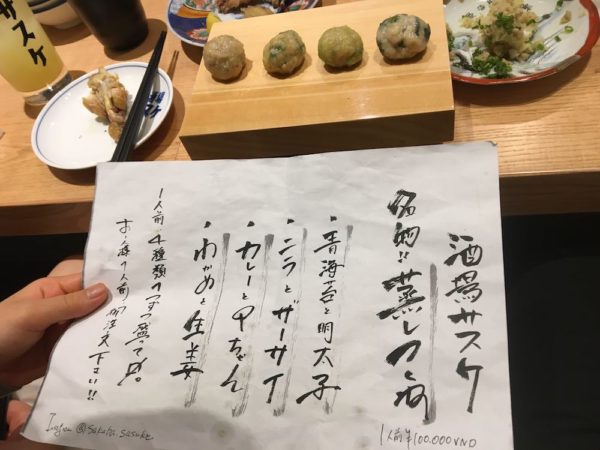 サスケ
酒場サスケ
名物!! 蒸しつくね
1人前¥100,000VND
・青海苔と明太子
・ニラとザーサイ
・カレーとちゃん
・わかめと生姜
1人前 4種類1つずつ盛って〼。
お1人様1人前ご注文下さい!!
@sakaba.sasuke